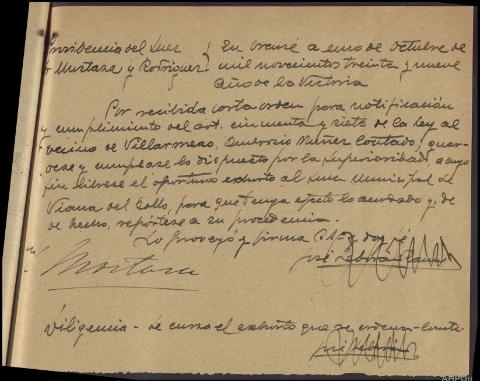 Providencia del Juez
Sr Mostaza y Rodriguez
En Orense a uno de Octubre de
mil novecientos treinta y nueve
Año de la Victoria
Por recibida carta orden para notificación
y cumplimiento del art. cincuenta y siete de la Ley al
vecino de Villarmeao, Ambrosio Nuñez Contado, guar-
dese y cumplase lo dispuesto por la Superioridad a cuyo
fin librese el oportuno exhorto al Juez Municipal de
Viana del Bollo, para que tenga efecto lo acordado y de
de hecho, repórtese a su procedencia.
Lo proveyó y firma S.Sª y doy fé
Mostaza
José
Diligencia - Se cursa el exhorto que se ordena